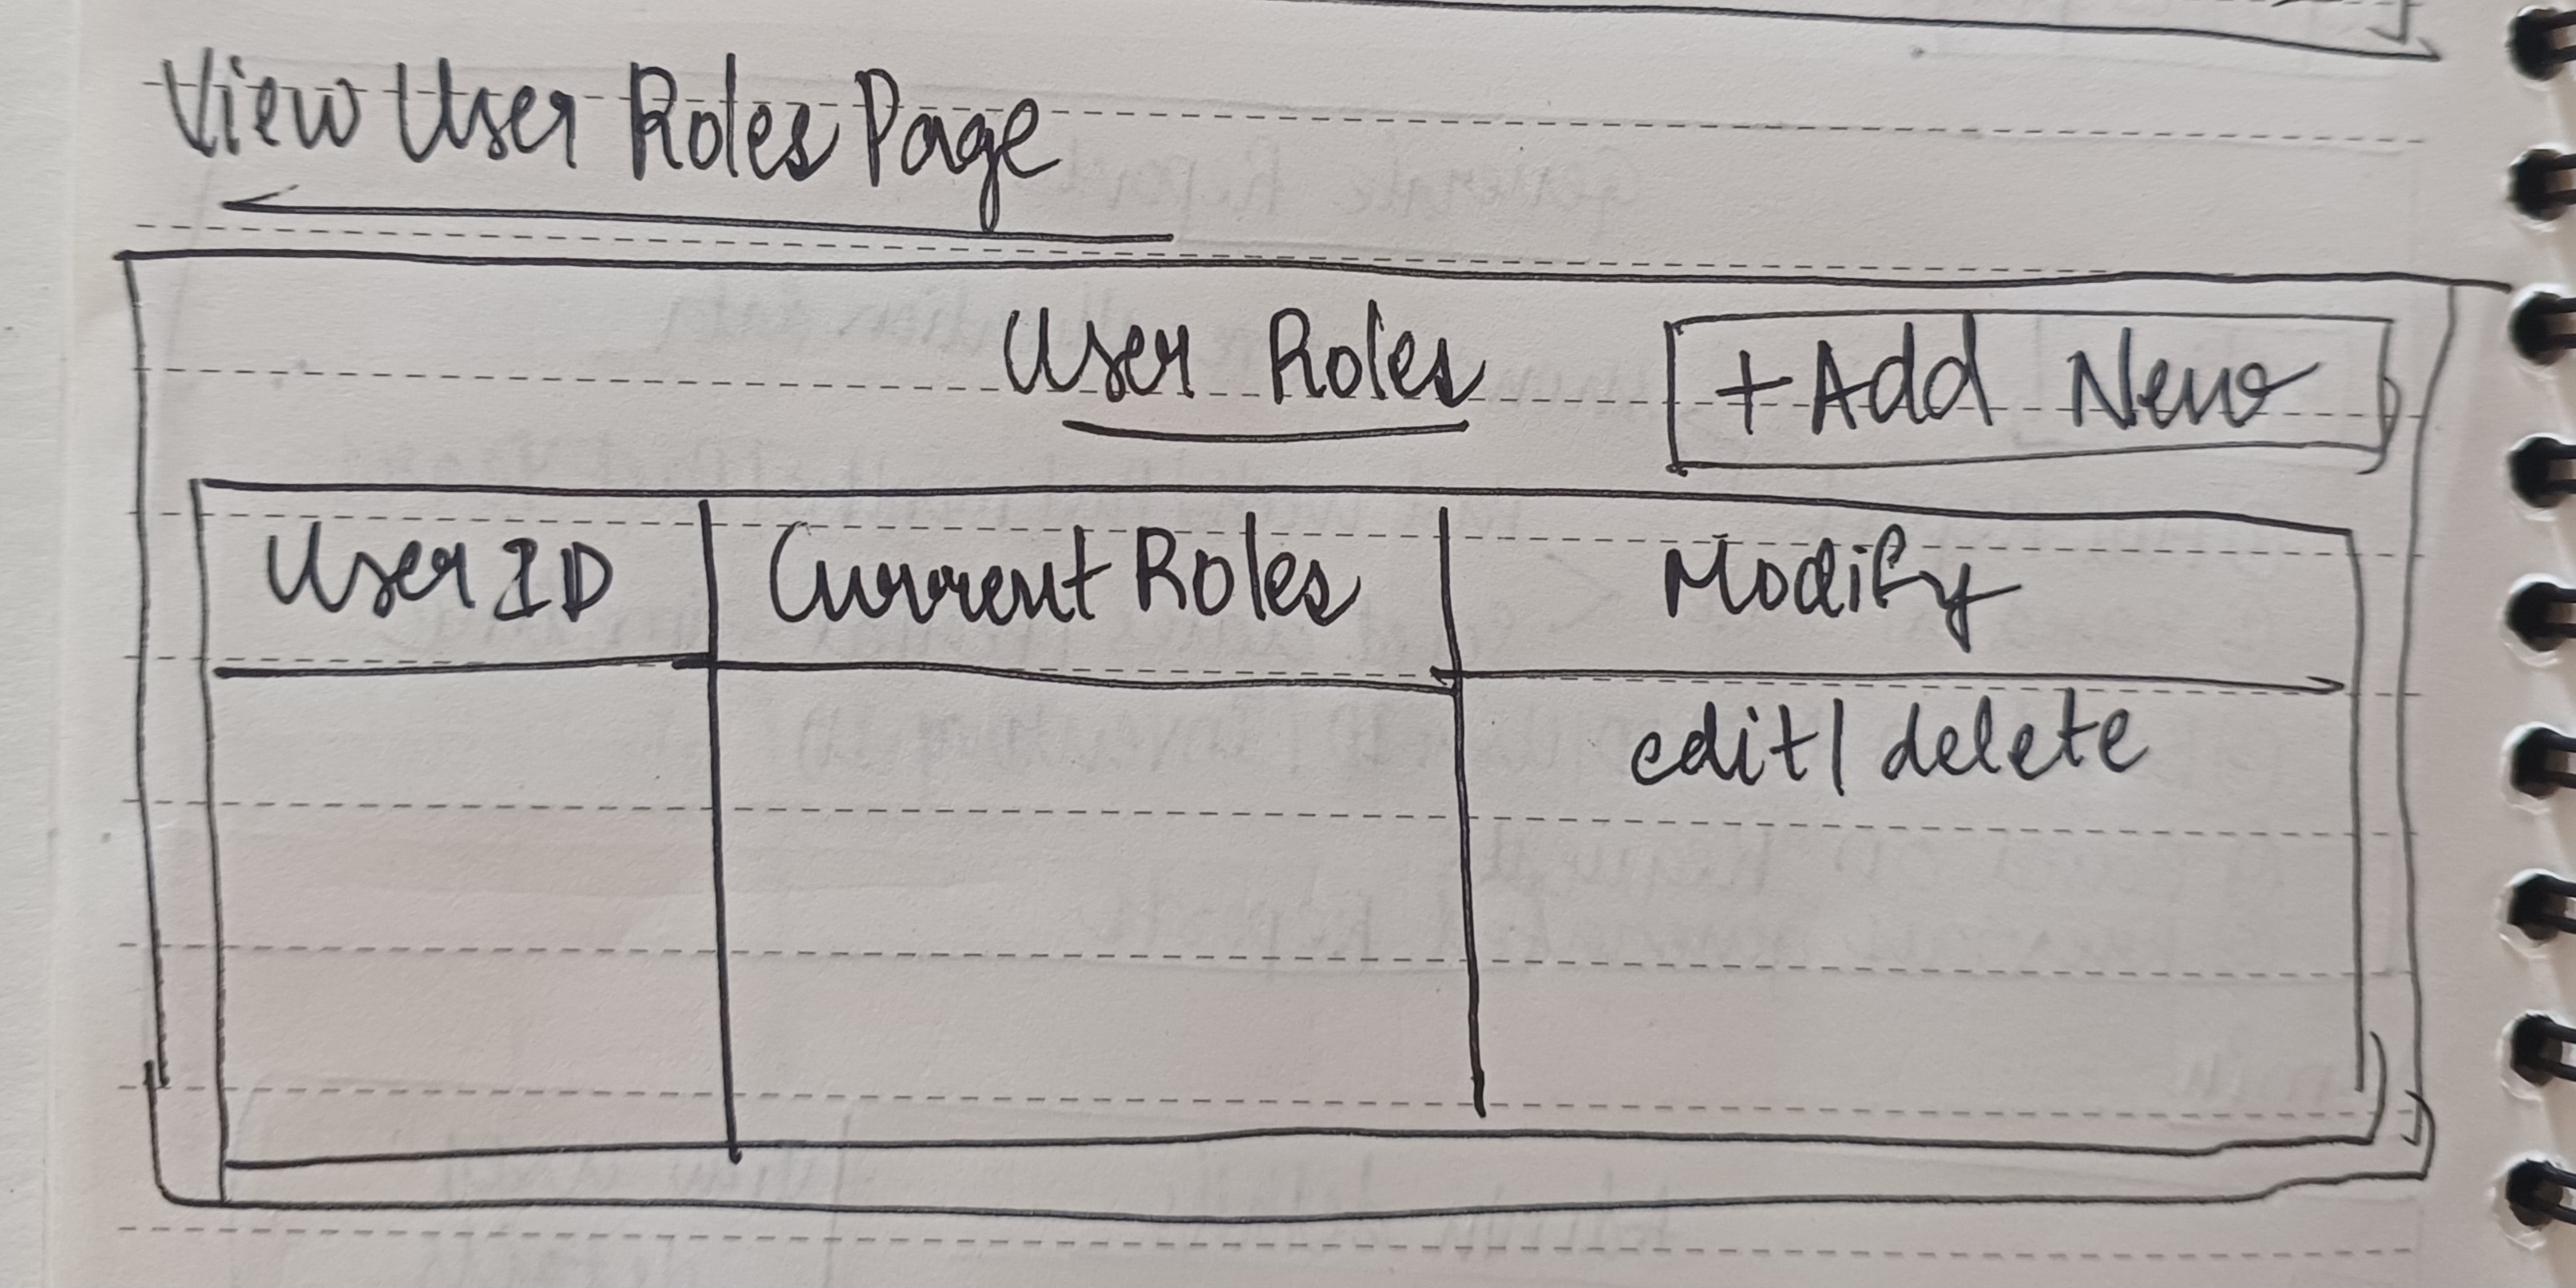 View User Roles Page
User Roles
+Add New
User ID
Current Roles
Modify
edit/ delete